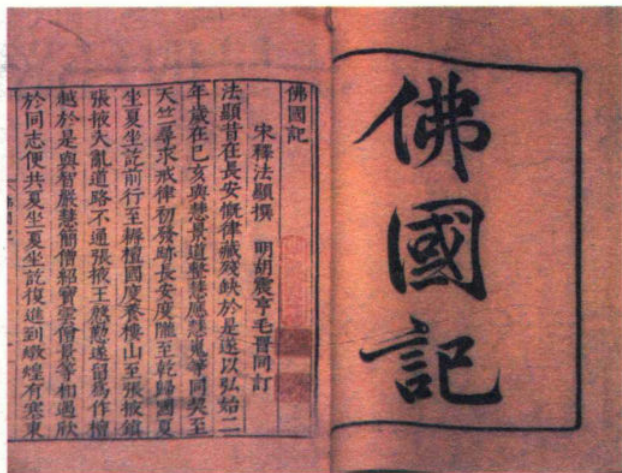 佛國記
佛國記
宋釋法顯撰 明胡震亨毛晉同訂
法顯昔在長安慨律藏殘缺於是遂以弘始二
年歲在己亥與慧景道整慧應慧嵬等同契至
天竺尋求戒律初發跡長安度隴至乾歸國夏
坐夏坐訖前行至褥檀國度養樓山至張掖鎮
張掖大亂道路不通張掖王慇懃遂留爲作檀
越於是與智嚴慧簡僧紹寶雲僧景等相遇欣
於同志便共夏坐夏坐訖復進到燉煌有塞東